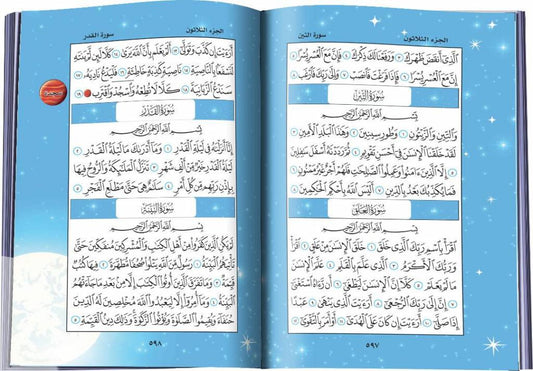 الجزء الثلاثون سورة التين
ٱلَّذِىٓ أَنقَضَ ظَهْرَكَ ٣ وَرَفَعْنَا لَكَ ذِكْرَكَ ٤ فَإِنَّ مَعَ ٱلْعُسْرِ يُسْرًا ٥
إِنَّ مَعَ ٱلْعُسْرِ يُسْرًا ٦ فَإِذَا فَرَغْتَ فَٱنصَبْ ٧ وَإِلَىٰ رَبِّكَ فَٱرْغَب ٨
سُورَةُ التِّينِ
بِسْمِ ٱللَّهِ ٱلرَّحْمَٰنِ ٱلرَّحِيمِ
وَٱلتِّينِ وَٱلزَّيْتُونِ ١ وَطُورِ سِينِينَ ٢ وَهَٰذَا ٱلْبَلَدِ ٱلْأَمِينِ ٣
لَقَدْ خَلَقْنَا ٱلْإِنسَٰنَ فِىٓ أَحْسَنِ تَقْوِيمٍ ٤ ثُمَّ رَدَدْنَٰهُ أَسْفَلَ سَٰفِلِينَ
٥ إِلَّا ٱلَّذِينَ ءَامَنُوا۟ وَعَمِلُوا۟ ٱلصَّٰلِحَٰتِ فَلَهُمْ أَجْرٌ غَيْرُ مَمْنُونٍ
٦ فَمَا يُكَذِّبُكَ بَعْدُ بِٱلدِّينِ ٧ أَلَيْسَ ٱللَّهُ بِأَحْكَمِ ٱلْحَٰكِمِينَ ٨
سُورَةُ العَلَقِ
بِسْمِ ٱللَّهِ ٱلرَّحْمَٰنِ ٱلرَّحِيمِ
ٱقْرَأْ بِٱسْمِ رَبِّكَ ٱلَّذِى خَلَقَ ١ خَلَقَ ٱلْإِنسَٰنَ مِنْ عَلَقٍ ٢ ٱقْرَأْ
وَرَبُّكَ ٱلْأَكْرَمُ ٣ ٱلَّذِى عَلَّمَ بِٱلْقَلَمِ ٤ عَلَّمَ ٱلْإِنسَٰنَ
مَا لَمْ يَعْلَمْ ٥ كَلَّآ إِنَّ ٱلْإِنسَٰنَ لَيَطْغَىٰٓ ٦ أَن رَّءَاهُ ٱسْتَغْنَىٰٓ
٧ إِنَّ إِلَىٰ رَبِّكَ ٱلرُّجْعَىٰٓ ٨ أَرَءَيْتَ ٱلَّذِى يَنْهَىٰ ٩ عَبْدًا
إِذَا صَلَّىٰٓ ١٠ أَرَءَيْتَ إِن كَانَ عَلَى ٱلْهُدَىٰٓ ١١ أَوْ أَمَرَ بِٱلتَّقْوَىٰٓ
٥٩٧
الجزء الثلاثون سورة القدر
أَرَءَيْتَ إِن كَذَّبَ وَتَوَلَّىٰٓ ١٣ أَلَمْ يَعْلَم بِأَنَّ ٱللَّهَ يَرَىٰ ١٤ كَلَّا لَئِن لَّمْ يَنتَهِ
لَنَسْفَعًۢا بِٱلنَّاصِيَةِ ١٥ نَاصِيَةٍ كَٰذِبَةٍ خَاطِئَةٍ ١٦ فَلْيَدْعُ نَادِيَهُۥ ١٧
سَنَدْعُ ٱلزَّبَانِيَةَ ١٨ كَلَّا لَا تُطِعْهُ وَٱسْجُدْ وَٱقْتَرِب ١٩
سُورَةُ القَدْرِ
بِسْمِ ٱللَّهِ ٱلرَّحْمَٰنِ ٱلرَّحِيمِ
إِنَّآ أَنزَلْنَٰهُ فِى لَيْلَةِ ٱلْقَدْرِ ١ وَمَآ أَدْرَىٰكَ مَا لَيْلَةُ ٱلْقَدْرِ ٢
لَيْلَةُ ٱلْقَدْرِ خَيْرٌ مِّنْ أَلْفِ شَهْرٍ ٣ تَنَزَّلُ ٱلْمَلَٰٓئِكَةُ وَٱلرُّوحُ فِيهَا
بِإِذْنِ رَبِّهِم مِّن كُلِّ أَمْرٍ ٤ سَلَٰمٌ هِىَ حَتَّىٰ مَطْلَعِ ٱلْفَجْرِ ٥
سُورَةُ البَيِّنَةِ
بِسْمِ ٱللَّهِ ٱلرَّحْمَٰنِ ٱلرَّحِيمِ
لَمْ يَكُنِ ٱلَّذِينَ كَفَرُوا۟ مِنْ أَهْلِ ٱلْكِتَٰبِ وَٱلْمُشْرِكِينَ مُنفَكِّينَ حَتَّىٰ
تَأْتِيَهُمُ ٱلْبَيِّنَةُ ١ رَسُولٌ مِّنَ ٱللَّهِ يَتْلُوا۟ صُحُفًا مُّطَهَّرَةً ٢ فِيهَا كُتُبٌ
قَيِّمَةٌ ٣ وَمَا تَفَرَّقَ ٱلَّذِينَ أُوتُوا۟ ٱلْكِتَٰبَ إِلَّا مِنۢ بَعْدِ مَا جَآءَتْهُمُ
ٱلْبَيِّنَةُ ٤ وَمَآ أُمِرُوٓا۟ إِلَّا لِيَعْبُدُوا۟ ٱللَّهَ مُخْلِصِينَ لَهُ ٱلدِّينَ
حُنَفَآءَ وَيُقِيمُوا۟ ٱلصَّلَوٰةَ وَيُؤْتُوا۟ ٱلزَّكَوٰةَ وَذَٰلِكَ دِينُ ٱلْقَيِّمَةِ ٥
٥٩٨